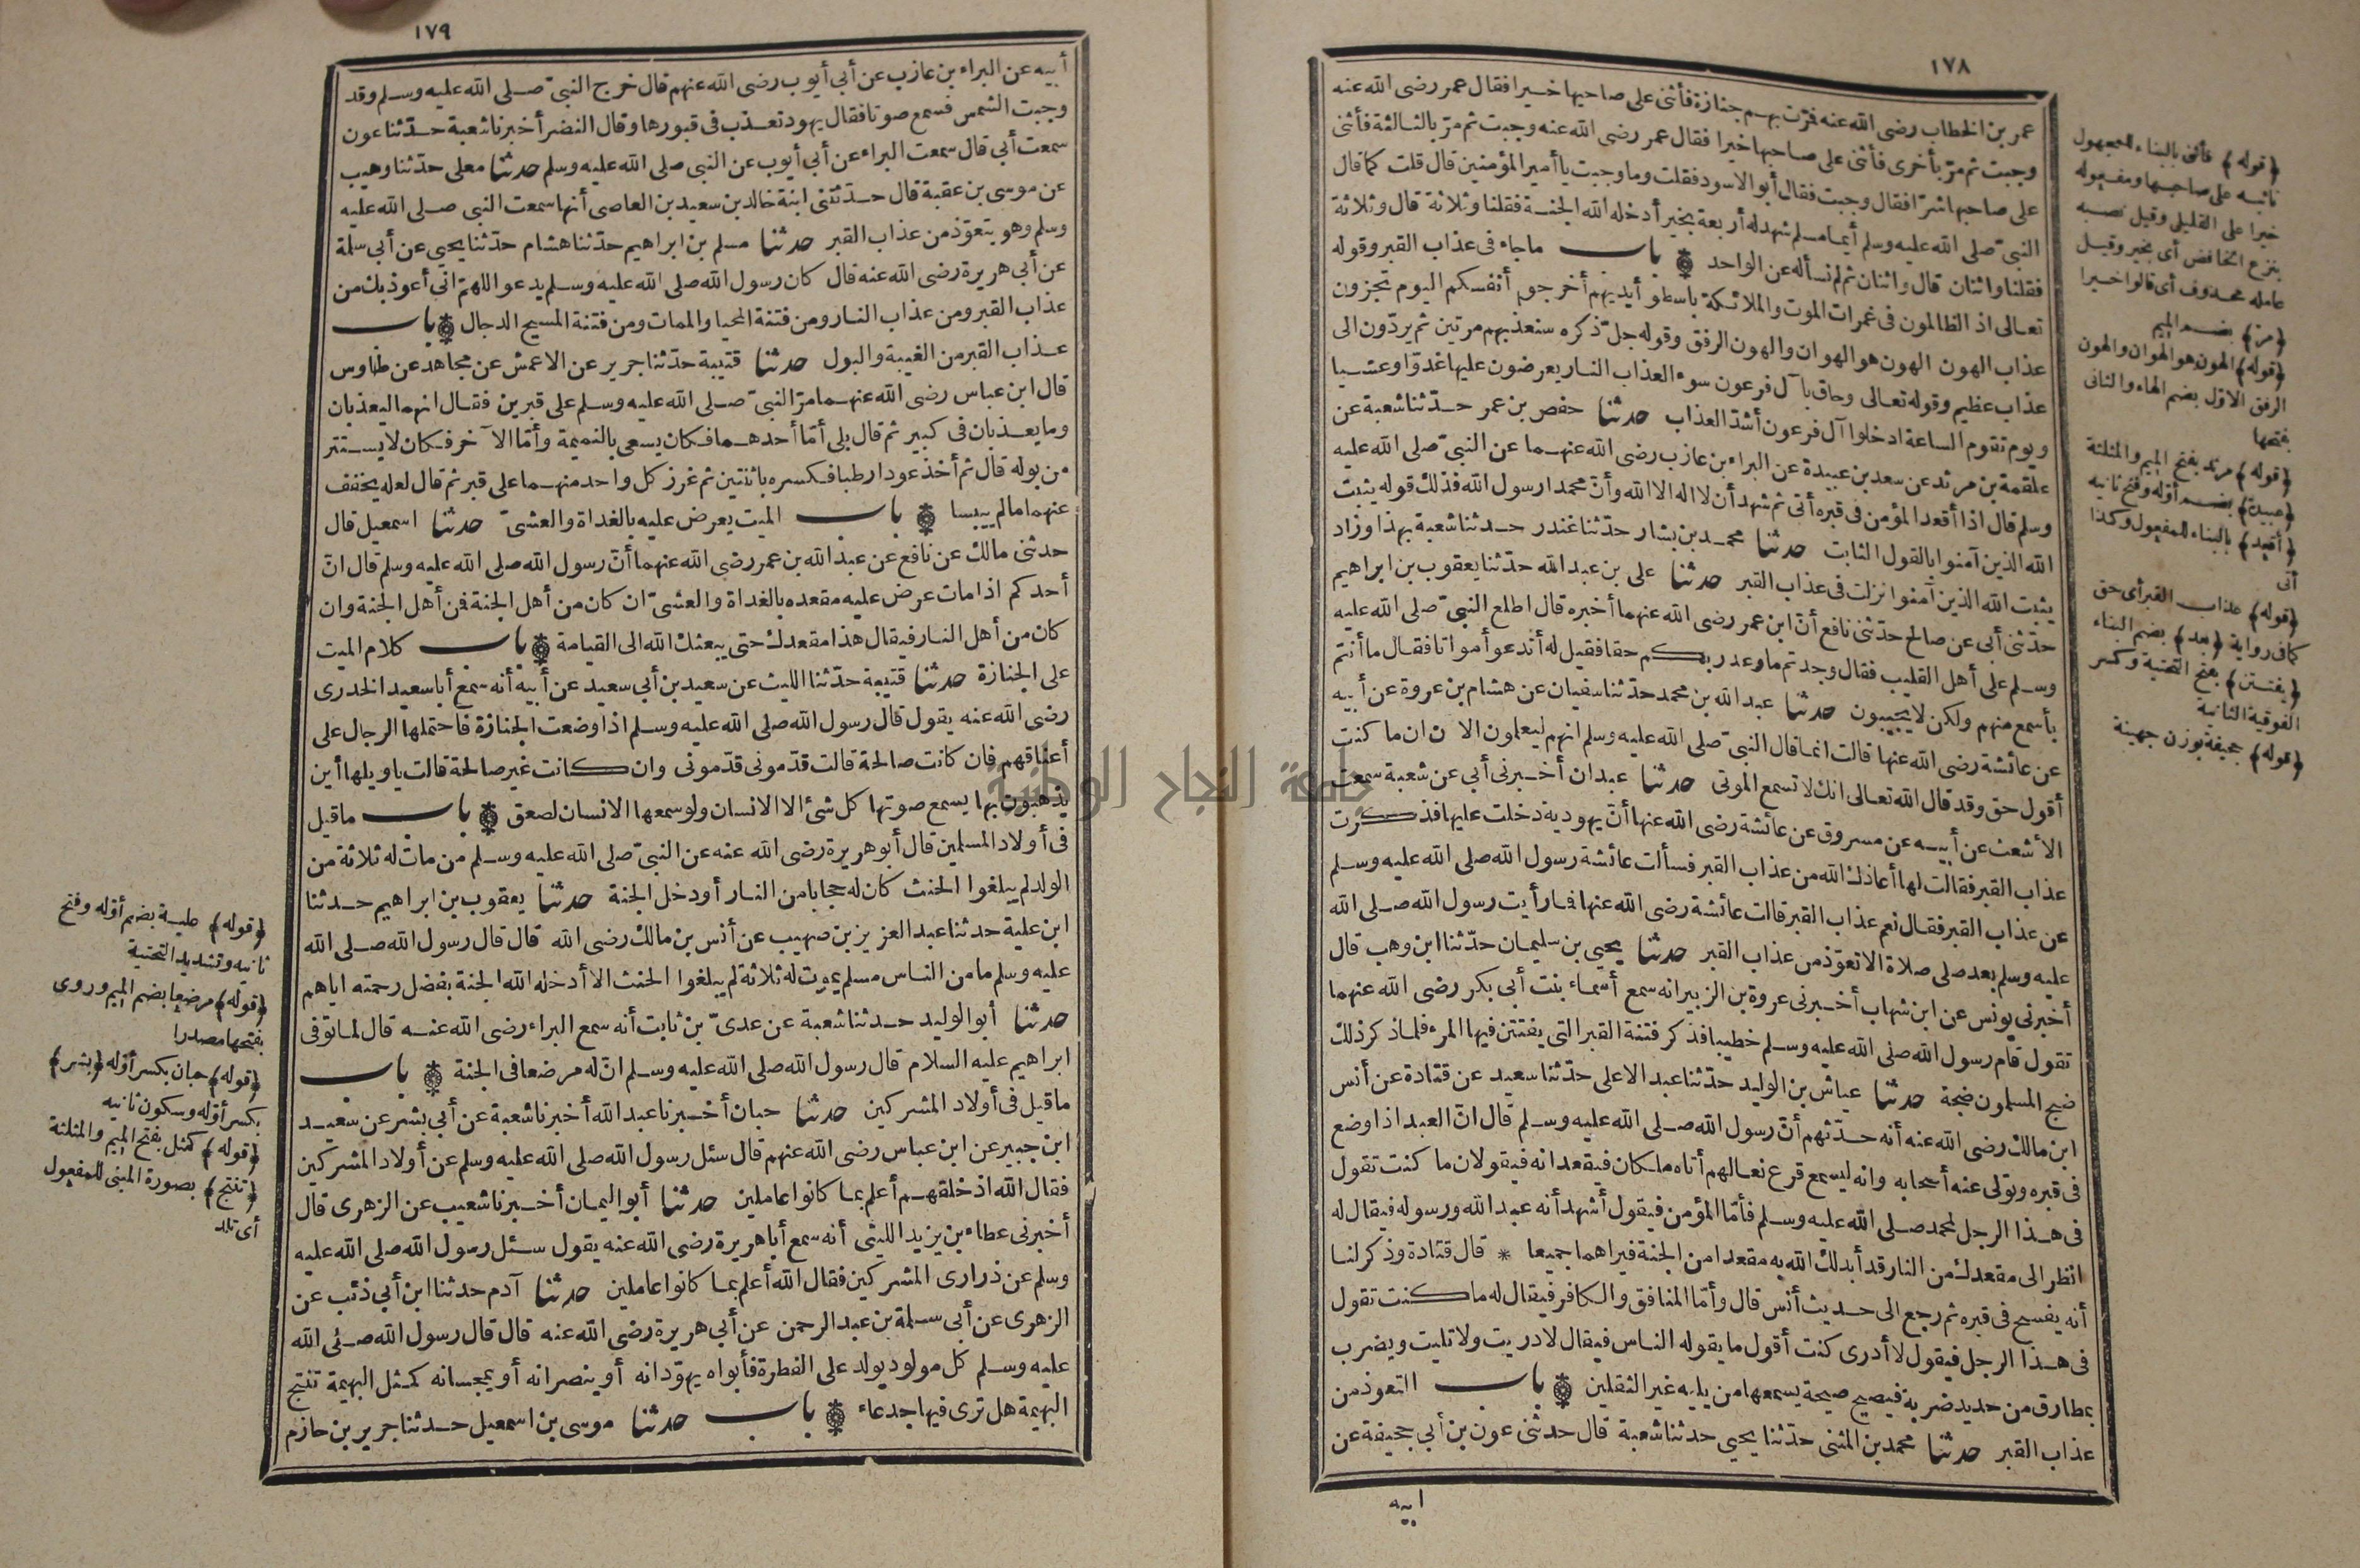 ١٧٨
عمر بن الخطاب رضى الله عنه فمرّت بهم جنازة فأثنى على صاحبها خيرا فقال عمر رضى الله عنه
وجبت ثم مرّ بأخرى فأثنى على صاحبها خيرا فقال عمر رضى الله عنه وجبت ثم مرّ بالثالثة فأثنى
على صاحبها شرّا فقال وجبت فقال أبو الاسود فقلت وما وجبت يا أمير المؤمنين قال قلت كما قال
النبىّ صلى الله عليه وسلم أيما مسلم شهد له أربعة بخير أدخله الله الجنة فقلنا وثلاثة قال وثلاثة
فقلنا واثنان قال واثنان ثم لم نسأله عن الواحد باب ما جاء فى عذاب القبر وقوله
تعالى اذ الظالمون فى غمرات الموت والملائكة باسطو أيديهم أخرجوا أنفسكم اليوم تجزون
عذاب الهون الهون هو الهوان والهون الرفق وقوله جلّ ذكره سنعذبهم مرتين ثم يردّون الى
عذاب عظيم وقوله تعالى وحاق بآل فرعون سوء العذاب النار يعرضون عليها غدوّا وعشيا
ويوم تقوم الساعة ادخلوا آل فرعون أشدّ العذاب حدثنا حفص بن عمر حدّثنا شعبة عن
علقمة بن مرثد عن سعد بن عبيدة عن البراء بن عازب رضى الله عنهما عن النبىّ صلى الله عليه
وسلم قال اذا أقعد المؤمن فى قبره أتى ثم شهد أن لا اله الا الله وأنّ محمدا رسول الله فذلك قوله يثبت
الله الذين آمنوا بالقول الثابت حدثنا محمد بن بشار حدّثنا غندر حدثنا شعبة بهذا وزاد
يثبت الله الذين آمنوا نزلت فى عذاب القبر حدثنا على بن عبد الله حدّثنا يعقوب بن ابراهيم
حدّثنى أبى عن صالح حدّثنى نافع أنّ ابن عمر رضى الله عنهما أخبره قال اطلع النبىّ صلى الله عليه
وسلم على أهل القليب فقال وجدتم ما وعد ربكم حقا فقيل له أتدعو أمواتا فقال ما أنتم
بأسمع منهم ولكن لا يجيبون حدثنا عبد الله بن محمد حدّثنا سفيان عن هشام بن عروة عن أبيه
عن عائشة رضى الله عنها قالت انما قال النبىّ صلى الله عليه وسلم انهم ليعلمون الآن ان ما كنت
أقول حق وقد قال الله تعالى انك لا تسمع الموتى حدثنا عبدان أخبرنى أبى عن شعبة سمعت
الأشعث عن أبيه عن مسروق عن عائشة رضى الله عنها أنّ يهودية دخلت عليها فذكرت
عذاب القبر فقالت لها أعاذك الله من عذاب القبر فسألت عائشة رسول الله صلى الله عليه وسلم
عن عذاب القبر فقال نعم عذاب القبر قالت عائشة رضى الله عنها فما رأيت رسول الله صلى الله
عليه وسلم بعد صلى صلاة الا تعوّذ من عذاب القبر حدثنا يحيى بن سليمان حدّثنا ابن وهب قال
أخبرنى يونس عن ابن شهاب أخبرنى عروة بن الزبير انه سمع أسماء بنت أبى بكر رضى الله عنهما
تقول قام رسول الله صلى الله عليه وسلم خطيبا فذكر فتنة القبر التى يفتتن فيها المرء فلما ذكر ذلك
ضج المسلمون ضجة حدثنا عياش بن الوليد حدّثنا عبد الاعلى حدّثنا سعيد عن قتادة عن أنس
ابن مالك رضى الله عنه أنه حدّثهم أنّ رسول الله صلى الله عليه وسلم قال انّ العبد اذا وضع
فى قبره وتولى عنه أصحابه وانه ليسمع قرع نعالهم أتاه ملكان فيقعدانه فيقولان ما كنت تقول
فى هذا الرجل لمحمد صلى الله عليه وسلم فأمّا المؤمن فيقول أشهد أنه عبد الله ورسوله فيقال له
انظر الى مقعدك من النار قد أبدلك الله به مقعدا من الجنة فيراهما جميعا * قال قتادة وذكر لنا
أنه يفسح فى قبره ثم رجع الى حديث أنس قال وأمّا المنافق والكافر فيقال له ما كنت تقول
فى هذا الرجل فيقول لا أدرى كنت أقول ما يقوله الناس فيقال لا دريت ولا تليت ويضرب
بمطارق من حديد ضربة فيصيح صيحة يسمعها من يليه غير الثقلين باب التعوذ من
عذاب القبر حدثنا محمد بن المثنى حدّثنا يحيى حدثنا شعبة قال حدثنى عون بن أبى جحيفة عن
ابيه
(قوله) فأثنى بالبناء للمجهول
نائبه على صاحبها ومفعوله
خيرا على القليلى وقيل نصبه
بنزع الخافض أى بخير وقيل
عامله محذوف أى قالوا خيرا
(مر) بضم الميم
(قوله) الهون هو الهوان والهون
الرفق الاول بضم الهاء والثانى
بفتحها
(قوله) مرثد بفتح الميم والمثلثة
(عبيدة) بضم أوله وفتح ثانيه
(أقعد) بالبناء للمفعول وكذا
أتى
(قوله) عذاب القبر أى حق
كما فى رواية (بعد) بضم البناء
(يفتتن) بفتح التحتية وكسر
الفوقية الثانية
(قوله) جحيفة بوزن جهينة
١٧٩
أبيه عن البراء بن عازب عن أبى أيوب رضى الله عنهم قال خرج النبىّ صلى الله عليه وسلم وقد
وجبت الشمس فسمع صوتا فقال يهود تعذب فى قبورها وقال النضر أخبرنا شعبة حدّثنا عون
سمعت أبى قال سمعت البراء عن أبى أيوب عن النبى صلى الله عليه وسلم حدثنا معلى حدّثنا وهيب
عن موسى بن عقبة قال حدّثتنى ابنة خالد بن سعيد بن العاصى أنها سمعت النبى صلى الله عليه
وسلم وهو يتعوّذ من عذاب القبر حدثنا مسلم بن ابراهيم حدّثنا هشام حدّثنا يحيى عن أبى سلمة
عن أبى هريرة رضى الله عنه قال كان رسول الله صلى الله عليه وسلم يدعو اللهمّ انى أعوذ بك من
عذاب القبر ومن عذاب النار ومن فتنة المحيا والممات ومن فتنة المسيح الدجال باب
عذاب القبر من الغيبة والبول حدثنا قتيبة حدّثنا جرير عن الاعمش عن مجاهد عن طاوس
قال ابن عباس رضى الله عنهما مرّ النبىّ صلى الله عليه وسلم على قبرين فقال انهما ليعذبان
وما يعذبان فى كبير ثم قال بلى أمّا أحدهما فكان يسعى بالنميمة وأمّا الآخر فكان لا يستتر
من بوله قال ثم أخذ عودا رطبا فكسره باثنتين ثم غرز كل واحد منهما على قبر ثم قال لعله يخفف
عنهما ما لم ييبسا باب الميت يعرض عليه بالغداة والعشىّ حدثنا اسمعيل قال
حدثنى مالك عن نافع عن عبد الله بن عمر رضى الله عنهما أنّ رسول الله صلى الله عليه وسلم قال انّ
أحدكم اذا مات عرض عليه مقعده بالغداة والعشىّ ان كان من أهل الجنة فمن أهل الجنة وان
كان من أهل النار فيقال هذا مقعدك حتى يبعثك الله الى القيامة باب كلام الميت
على الجنازة حدثنا قتيبة حدّثنا الليث عن سعيد بن أبى سعيد عن أبيه أنه سمع أبا سعيد الخدرى
رضى الله عنه يقول قال رسول الله صلى الله عليه وسلم اذا وضعت الجنازة فاحتملها الرجال على
أعناقهم فان كانت صالحة قالت قدّمونى قدّمونى وان كانت غير صالحة قالت يا ويلها أين
يذهبون بها يسمع صوتها كل شئ الا الانسان ولو سمعها الانسان لصعق باب ما قيل
فى أولاد المسلمين قال أبو هريرة رضى الله عنه عن النبىّ صلى الله عليه وسلم من مات له ثلاثة من
الولد لم يبلغوا الحنث كان له حجابا من النار أو دخل الجنة حدثنا يعقوب بن ابراهيم حدثنا
ابن علية حدثنا عبد العزيز بن صهيب عن أنس بن مالك رضى الله قال قال رسول الله صلى الله
عليه وسلم ما من الناس مسلم يموت له ثلاثة لم يبلغوا الحنث الا أدخله الله الجنة بفضل رحمته اياهم
حدثنا أبو الوليد حدثنا شعبة عن عدىّ بن ثابت أنه سمع البراء رضى الله عنه قال لما توفى
ابراهيم عليه السلام قال رسول الله صلى الله عليه وسلم انّ له مرضعا فى الجنة باب
ما قيل فى أولاد المشركين حدثنا حبان أخبرنا عبد الله أخبرنا شعبة عن أبى بشر عن سعيد
ابن جبير عن ابن عباس رضى الله عنهم قال سئل رسول الله صلى الله عليه وسلم عن أولاد المشركين
فقال الله اذ خلقهم أعلم بما كانوا عاملين حدثنا أبو اليمان أخبرنا شعيب عن الزهرى قال
أخبرنى عطاء بن يزيد الليثى أنه سمع أبا هريرة رضى الله عنه يقول سئل رسول الله صلى الله عليه
وسلم عن ذرارى المشركين فقال الله أعلم بما كانوا عاملين حدثنا آدم حدثنا ابن أبى ذئب عن
الزهرى عن أبى سلمة بن عبد الرحمن عن أبى هريرة رضى الله عنه قال قال رسول الله صلى الله
عليه وسلم كل مولود يولد على الفطرة فأبواه يهوّدانه أو ينصرانه أو يمجسانه كمثل البهيمة تنتج
البهيمة هل ترى فيها جدعاء باب حدثنا موسى بن اسمعيل حدثنا جرير بن حازم
(قوله) علية بضم أوله وفتح
ثانيه وتشديد التحتية
(قوله) مرضعا بضم الميم وروى
بفتحها مصدرا
(قوله) حبان بكسر أوله (بشر)
بكسر أوله وسكون ثانيه
(قوله) كمثل بفتح الميم والمثلثة
(تنتج) بصورة المبنى للمفعول
أى تلد
جامعة النجاح الوطنية